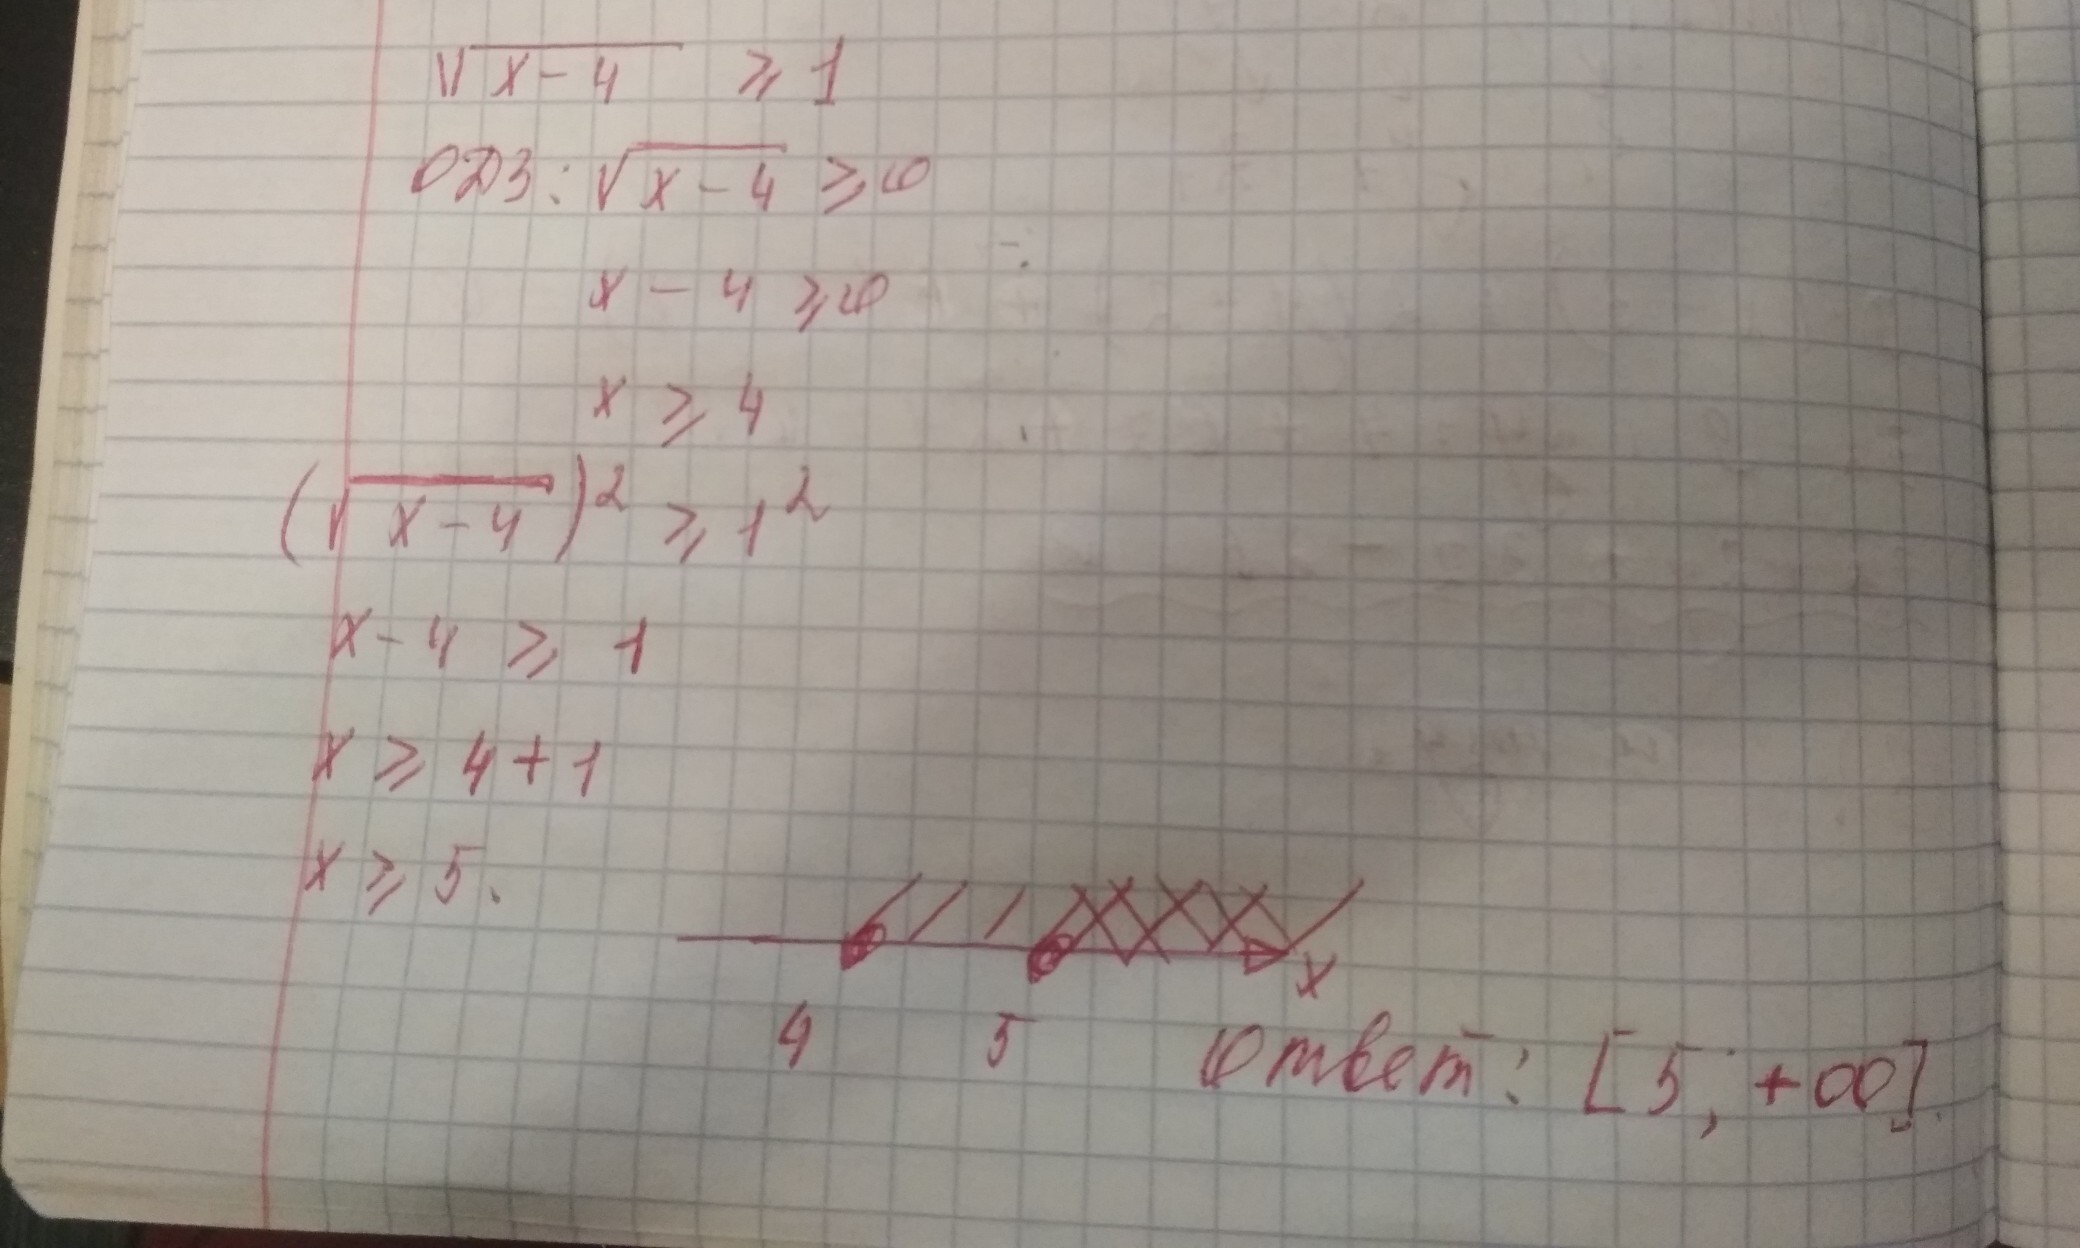 √x-4 ⩾ 1
ОДЗ: √x-4 ⩾ 0
x - 4 ⩾ 0
x ⩾ 4
(√x-4)² ⩾ 1²
x-4 ⩾ 1
x ⩾ 4+1
x ⩾ 5.
x
4 5
Ответ: [5; +∞].